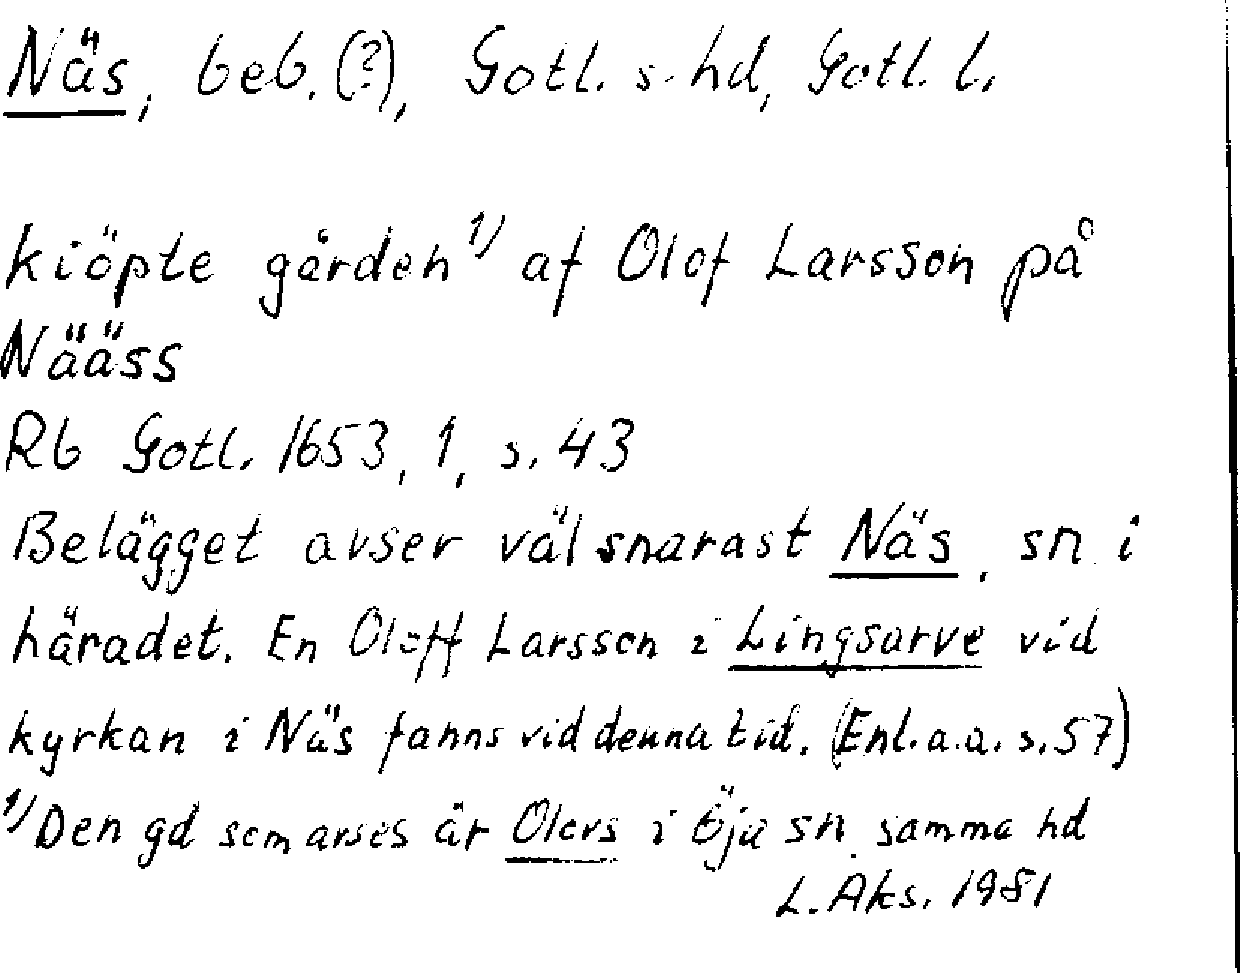 Näs, beb. (?), Gotl. s. hd, Gotl. l.
kiöpte gården 1) af Olof Larsson på
Nääss
Rb Gotl. 1653, 1, s. 43
Belägget avser väl snarast Näs, sn i
häradet. En Oloff Larsson i Lingsarve vid
kyrkan i Näs fanns vid denna tid. (Enl. a.a. s. 57)
1) Den gd som avses är Olovs i Öja sn samma hd
L. Åks. 1981